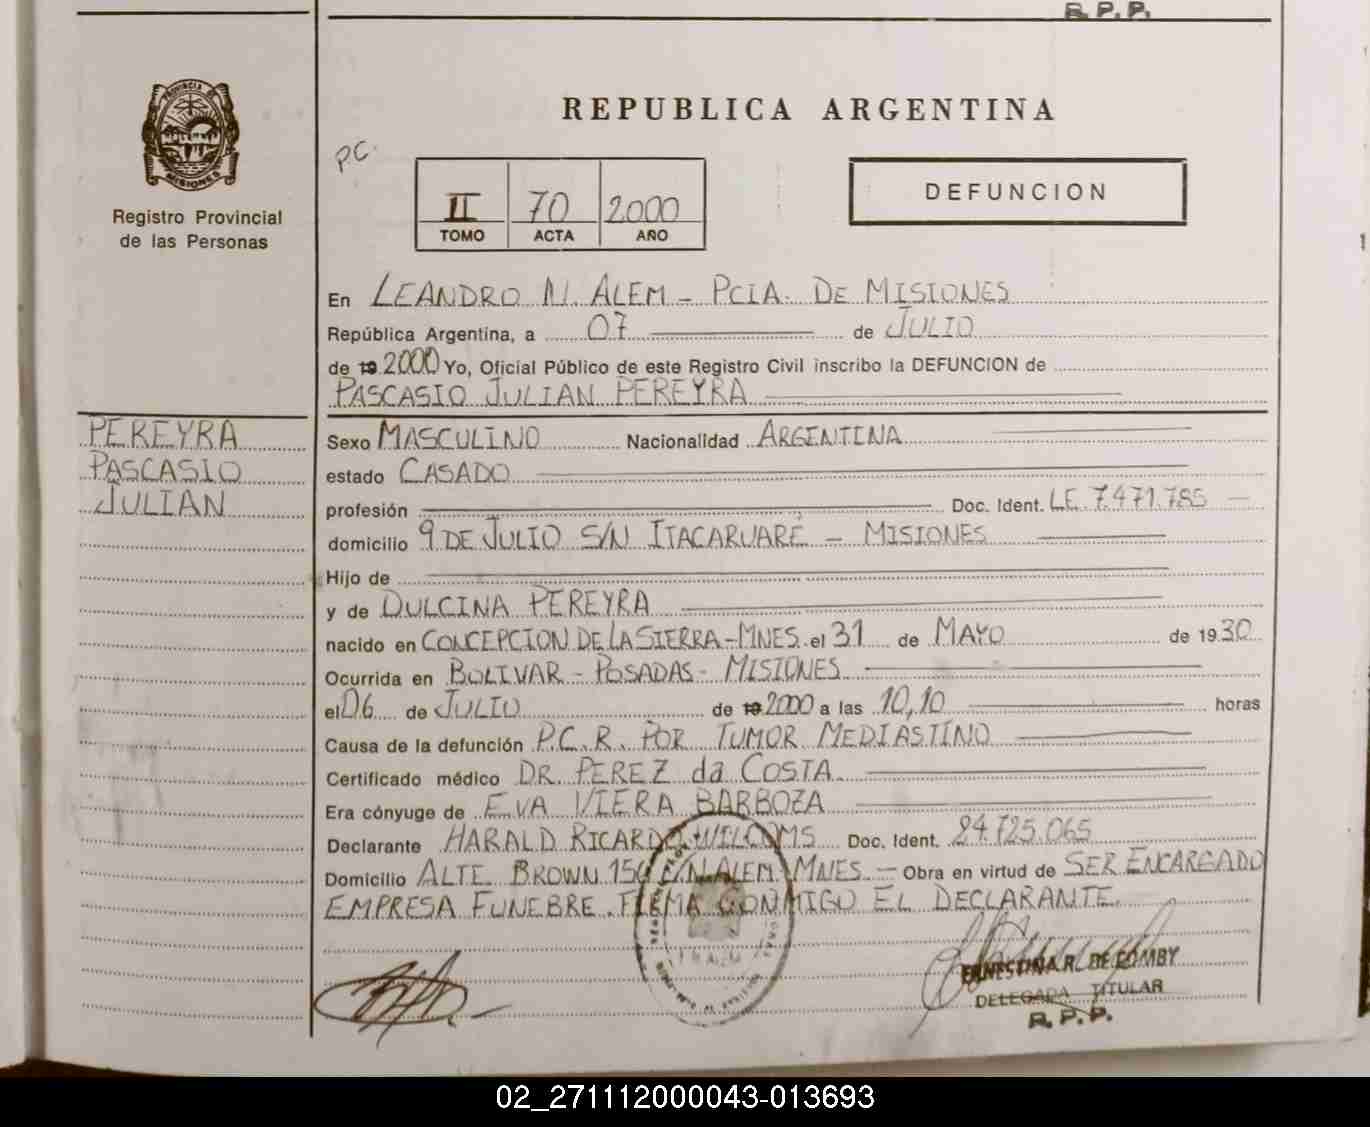 R. P. P.
PROVINCIA DE
MISIONES
Registro Provincial
de las Personas
REPUBLICA ARGENTINA
P.C.
II 70 2000
TOMO ACTA AÑO
DEFUNCION
En LEANDRO N. ALEM - PCIA. DE MISIONES
República Argentina, a 07 de JULIO
de 19 2000 Yo, Oficial Público de este Registro Civil inscribo la DEFUNCION de
PASCASIO JULIAN PEREYRA
PEREYRA
PASCASIO
JULIAN
Sexo MASCULINO Nacionalidad ARGENTINA
estado CASADO
profesión Doc. Ident. LE. 7.471.785 -
domicilio 9 DE JULIO S/N ITACARUARÉ - MISIONES
Hijo de
y de DULCINA PEREYRA
nacido en CONCEPCION DE LA SIERRA - MNES. el 31 de MAYO de 1930
Ocurrida en BOLIVAR - POSADAS - MISIONES
el 06 de JULIO de 19 2000 a las 10,10 horas
Causa de la defunción P.C.R. POR TUMOR MEDIASTINO
Certificado médico DR. PEREZ da COSTA.
Era cónyuge de EVA VIERA BARBOZA
Declarante HARALD RICARDO WILCOMS Doc. Ident. 24.725.065
Domicilio ALTE. BROWN 154 L.N. ALEM - MNES. - Obra en virtud de SER ENCARGADO
EMPRESA FUNEBRE. FIRMA CONMIGO EL DECLARANTE.
ERNESTINA R. DE COMBY
DELEGADA TITULAR
R. P. P.
02_271112000043-013693